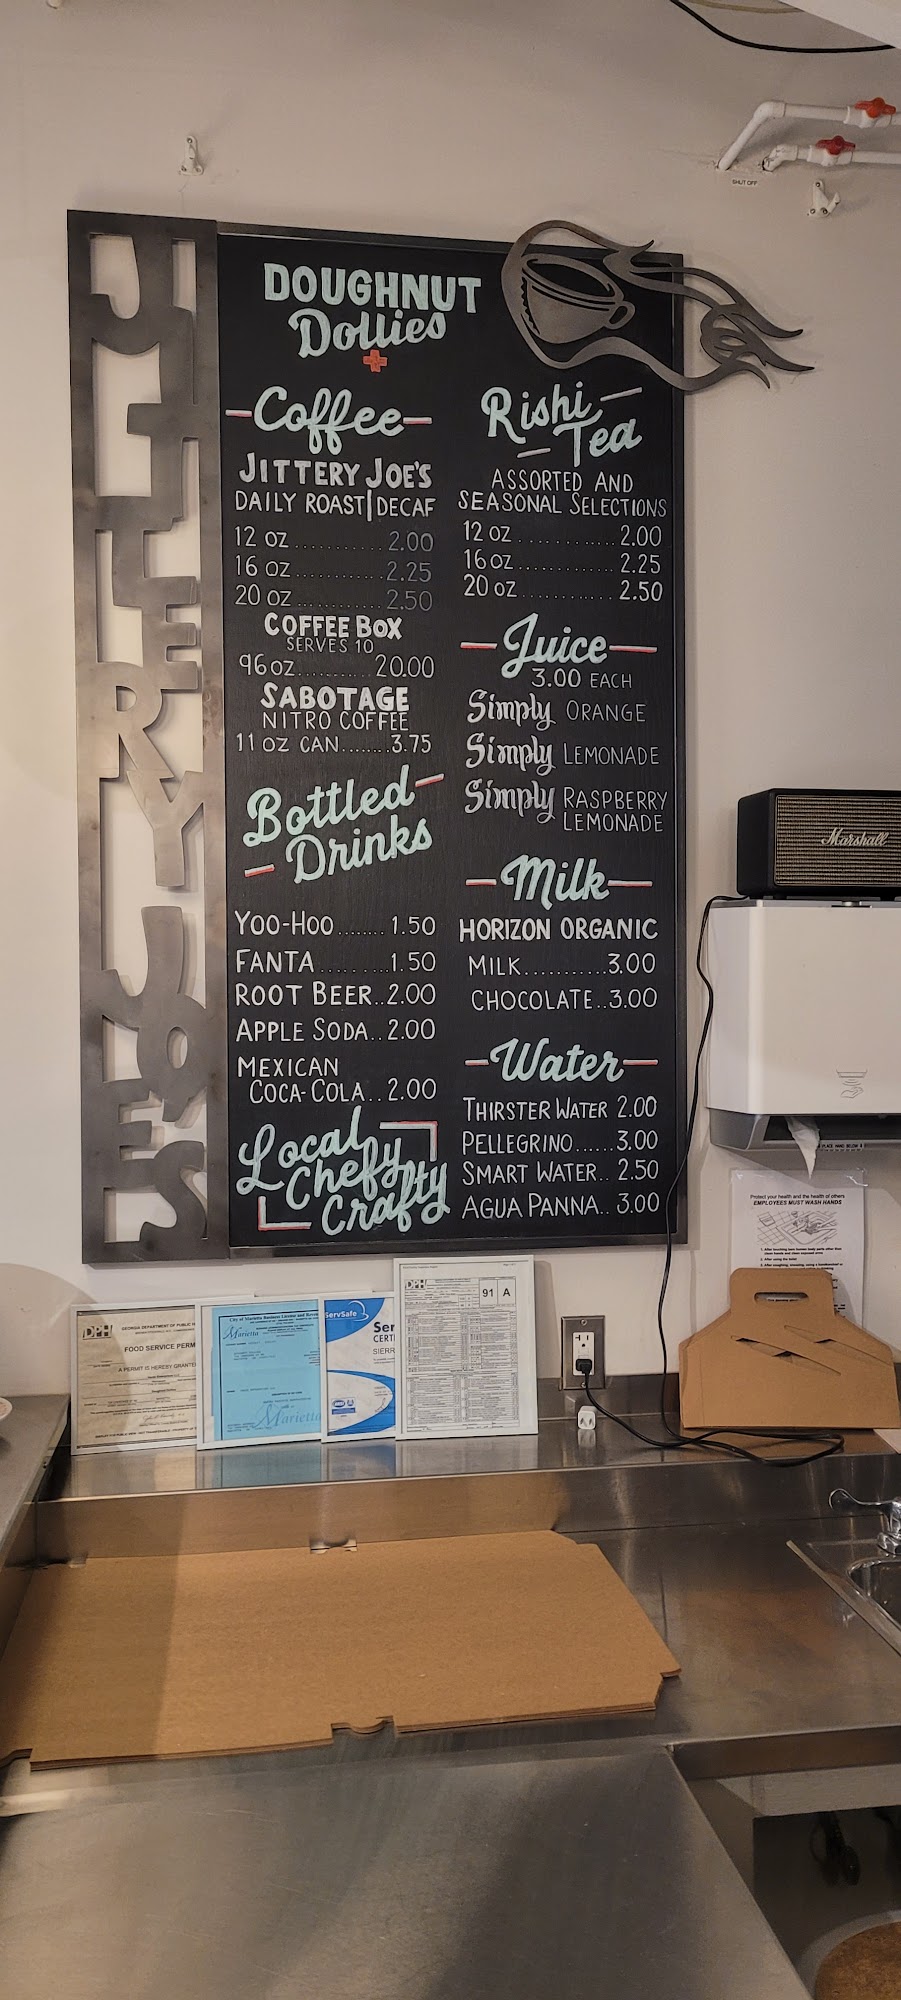 SHUT OFF
JITTERY JOE'S
DOUGHNUT
Dollies
Coffee
JITTERY JOE'S
DAILY ROAST|DECAF
12 OZ............2.00
16 OZ............2.25
20 OZ............2.50
COFFEE BOX
SERVES 10
96 OZ..........20.00
SABOTAGE
NITRO COFFEE
11 OZ CAN........3.75
Bottled
Drinks
YOO-HOO........1.50
FANTA..........1.50
ROOT BEER..2.00
APPLE SODA..2.00
MEXICAN
COCA-COLA..2.00
Local
Chefy
Crafty
Rishi
Tea
ASSORTED AND
SEASONAL SELECTIONS
12 OZ.............2.00
16 OZ.............2.25
20 OZ............2.50
Juice
3.00 EACH
Simply ORANGE
Simply LEMONADE
Simply RASPBERRY
LEMONADE
Milk
HORIZON ORGANIC
MILK...........3.00
CHOCOLATE..3.00
Water
THIRSTER WATER 2.00
PELLEGRINO......3.00
SMART WATER..2.50
AGUA PANNA..3.00
Marshall
Protect your health and the health of others
EMPLOYEES MUST WASH HANDS
DPH
FOOD SERVICE PERM
A PERMIT IS HEREBY GRANTE
City of Marietta Business License
Marietta
Marietta
ServSafe
Ser
CERTI
SIERR
DPH
91 A